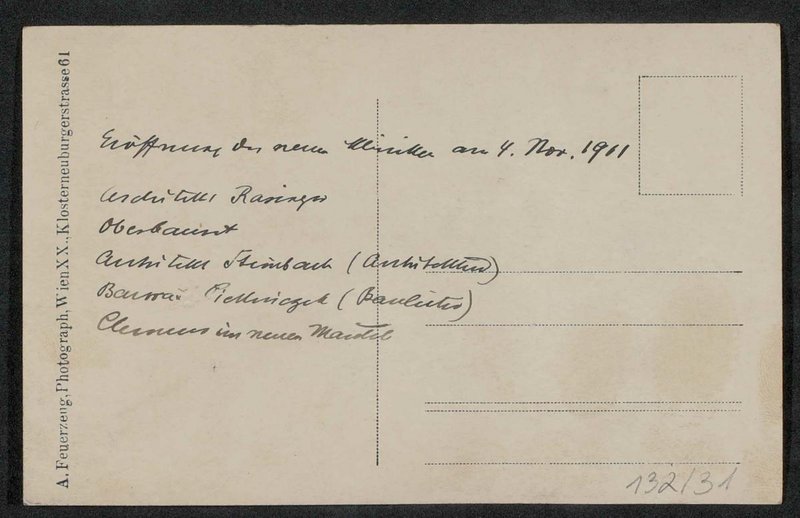 A. Feuerzeug, Photograph, Wien XX., Klosterneuburgerstrasse 61
Eröffnung der neuen Kliniken am 4. Nov. 1911
Architekt
Oberbaurat
Architekt Steinbach (Architektur)
Baurat (Bauleiter)
Clemens im neuen Mantel
132/31